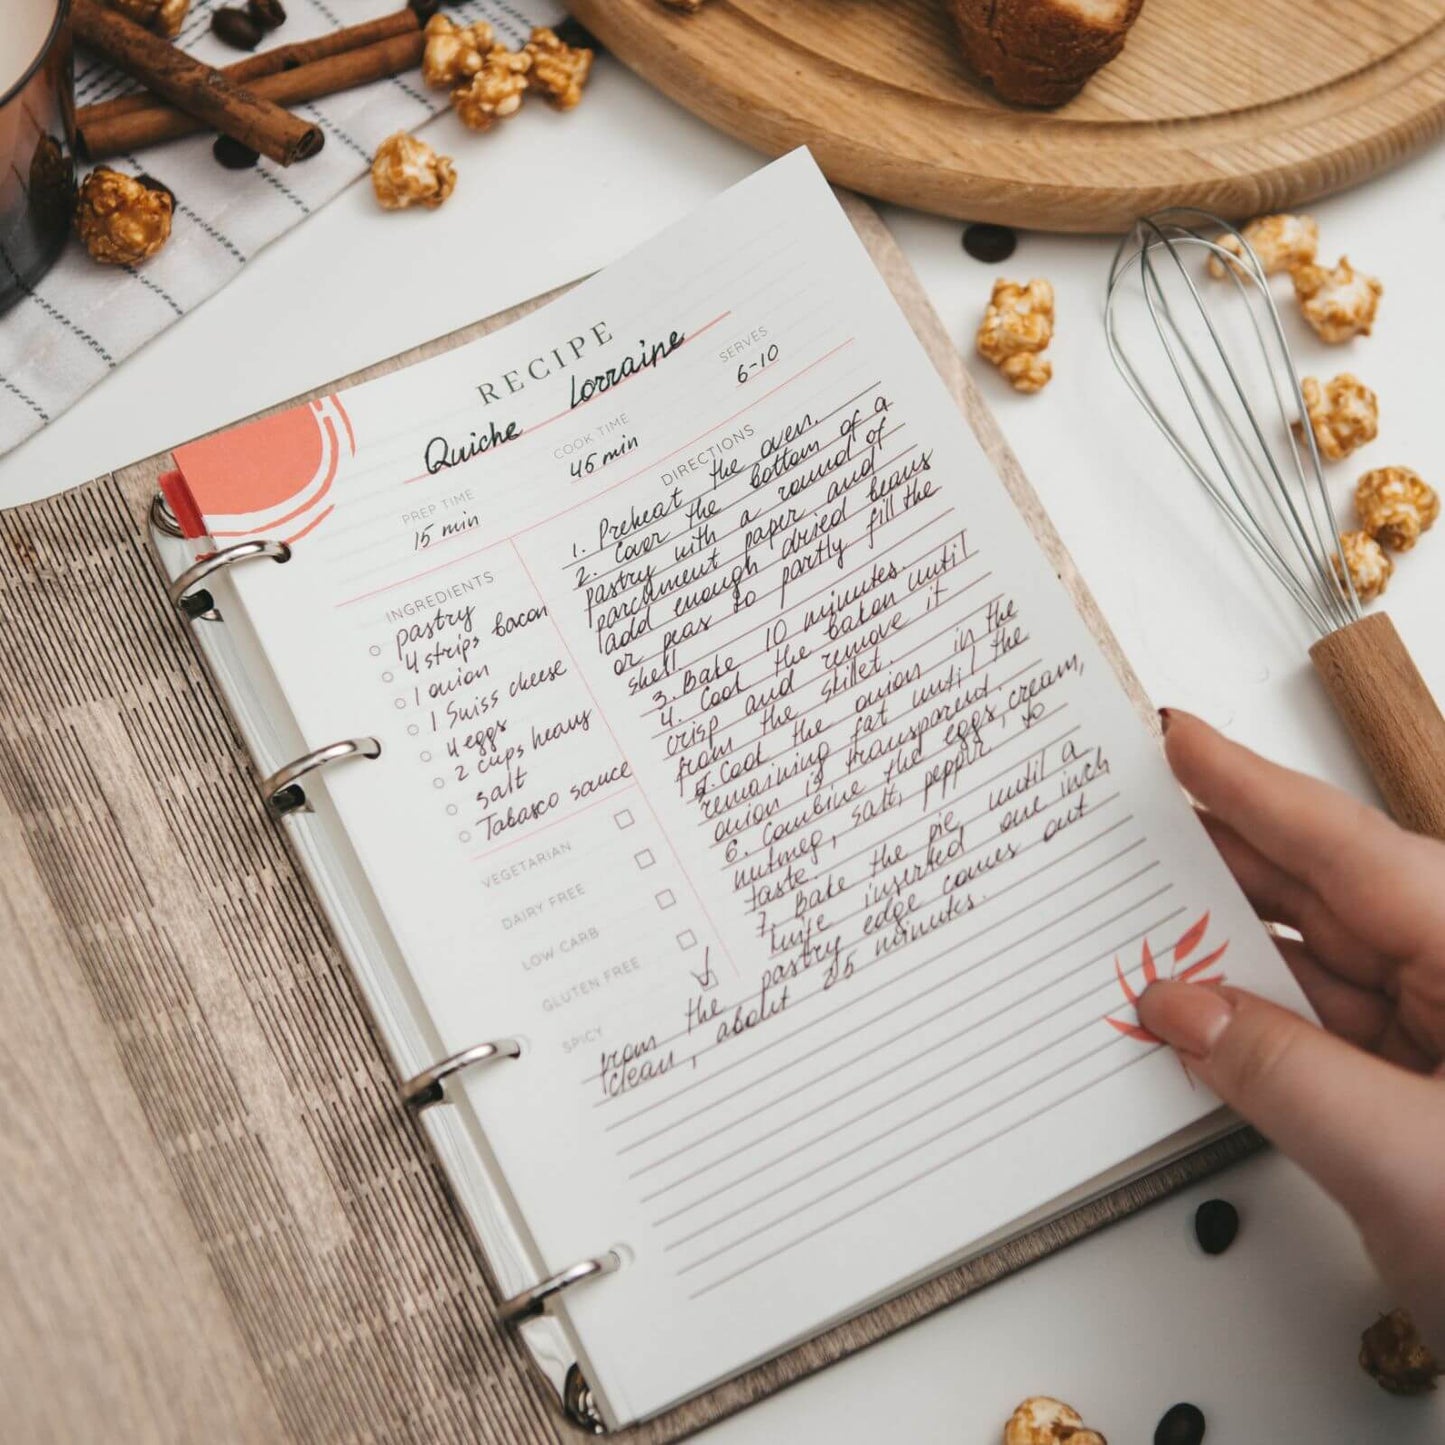 RECIPE
Quiche Lorraine
PREP TIME
15 min
COOK TIME
45 min
SERVES
6-10
INGREDIENTS
pastry
4 strips bacon
1 onion
1 Swiss cheese
4 eggs
2 cups heavy
salt
Tabasco sauce
VEGETARIAN
DAIRY FREE
LOW CARB
GLUTEN FREE
SPICY
DIRECTIONS
1. Preheat the oven.
2. Cover the bottom of a
pastry with a round of
parchment paper and
add enough dried beans
or peas to partly fill the
shell
3. Bake 10 minutes.
4. Cook the bakon until
crisp and remove it
from the skillet.
5. Cook the onion in the
remaining fat until the
onion is transparent.
6. Combine the eggs, cream,
nutmeg, salt, pepper to
taste.
7. Bake the pie until a
knife inserted one inch
from the pastry edge comes out
clean, about 25 minutes.